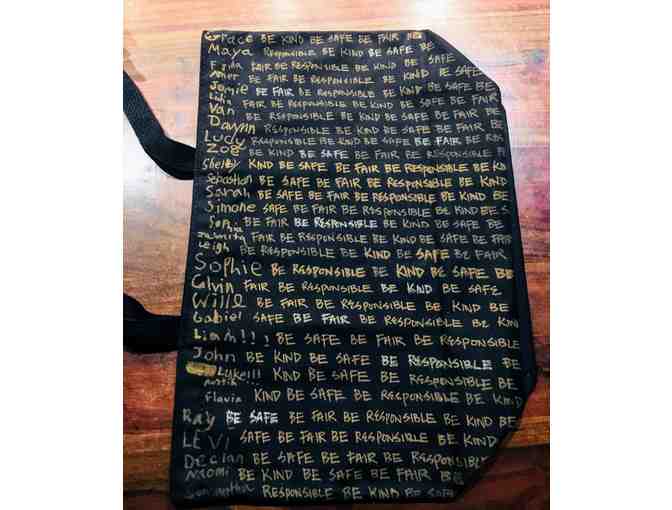 Grace BE KIND BE SAFE BE FAIR BE
Maya RESPONSIBLE BE KIND BE SAFE BE
FAIR BE RESPONSIBLE BE KIND BE SAFE
BE FAIR BE RESPONSIBLE BE KIND BE SAFE
Jamie BE FAIR BE RESPONSIBLE BE KIND BE SAFE BE
Lidia FAIR BE RESPONSIBLE BE KIND BE SAFE BE FAIR
Van BE RESPONSIBLE BE KIND BE SAFE BE FAIR BE
Daynn RESPONSIBLE BE KIND BE SAFE BE FAIR BE
Lucy RESPONSIBLE BE KIND BE SAFE BE FAIR BE RES
Zoe BE KIND BE SAFE BE FAIR BE RESPONSIBLE
Shelby KIND BE SAFE BE FAIR BE RESPONSIBLE BE KIND
Sebastian BE SAFE BE FAIR BE RESPONSIBLE BE KIND
Sarah BE SAFE BE FAIR BE RESPONSIBLE BE KIND
Simone SAFE BE FAIR BE RESPONSIBLE BE KIND BE S
BE FAIR BE RESPONSIBLE BE KIND BE SAFE BE
FAIR BE RESPONSIBLE BE KIND BE SAFE BE FAIR
Leigh BE RESPONSIBLE BE KIND BE SAFE BE FAIR
Sophie BE RESPONSIBLE BE KIND BE SAFE BE
Calvin FAIR BE RESPONSIBLE BE KIND BE SAFE
Will BE FAIR BE RESPONSIBLE BE KIND BE
Gabriel SAFE BE FAIR BE RESPONSIBLE BE KIND
Liam!!! BE SAFE BE FAIR BE RESPONSIBLE
John BE KIND BE SAFE BE RESPONSIBLE BE
Luke!!! KIND BE SAFE BE FAIR BE RESPONSIBLE
Austin
Flavia KIND BE SAFE BE FAIR BE RESPONSIBLE BE
Ray BE SAFE BE FAIR BE RESPONSIBLE BE KIND BE
LEVI SAFE BE FAIR BE RESPONSIBLE BE KIND
Declan BE SAFE BE FAIR BE RESPONSIBLE BE
Naomi BE KIND BE SAFE BE FAIR BE
Samantha RESPONSIBLE BE KIND BE SAFE